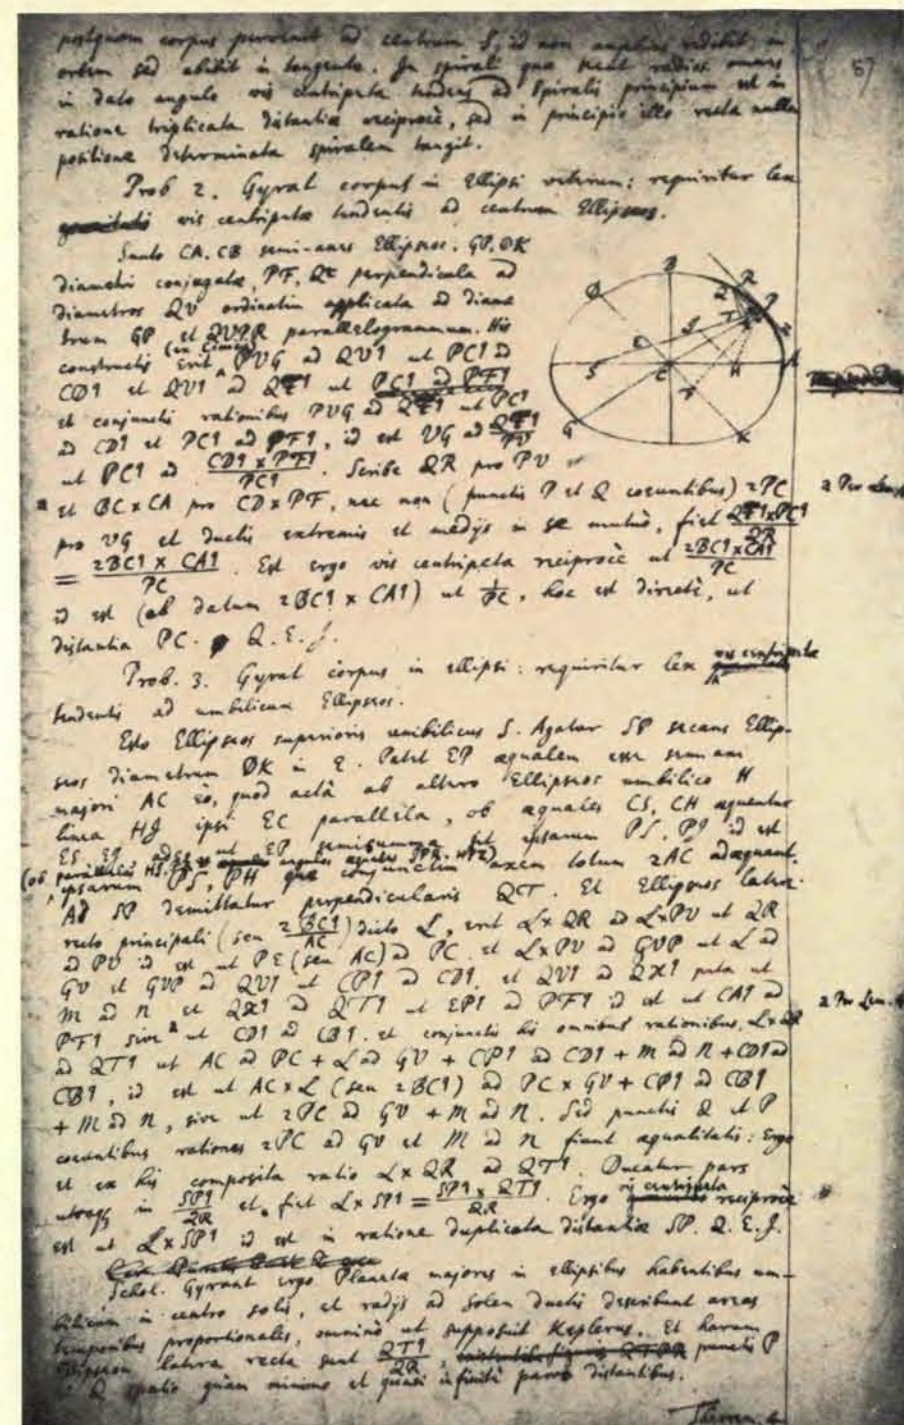 postquam corpus pervenit ad centrum S, id non amplius redibit in
orbem sed abibit in tangente. In spirali quæ secat radios omnes
in dato angulo vis centripeta tendens ad Spiralis principium est in
ratione triplicata distantiæ reciprocè, sed in principio illo recta nulla
positione determinata spiralem tangit.
57
Prob 2. Gyrat corpus in Ellipsi veterum: requiritur lex
gravitatis vis centripetæ tendentis ad centrum Ellipseos.
Sunto CA, CB semi-axes Ellipseos, GP, DK
diametri conjugatæ, PF, Qt perpendicula ad
diametros QV ordinatim applicata ad diame
trum GP et QVPR parallelogrammum. His
constructis erit (in Lem) PVG ad QVq ut PCq ad
CDq et QVq ad Qtq ut PCq ad PFq
et conjunctis rationibus PVG ad Qtq ut PCq
ad CDq et PCq ad PFq, id est VG ad Qtq/PV
ut PCq ad CDq × PFq/PCq. Scribe QR pro PV
et BC×CA pro CD×PF, nec non (punctis P et Q coeuntibus) 2PC
a Per Lem.
pro VG et ductis extremis et medijs in se mutuò, fiet Qtq×PCq/QR
= 2BCq × CAq/PC. Est ergo vis centripeta reciprocè ut 2BCq×CAq/PC
id est (ob datum 2BCq × CAq) ut 1/PC, hoc est directè, ut
distantia PC. Q.E.I.
Prob. 3. Gyrat corpus in ellipsi: requiritur lex vis centripetæ
tendentis ad umbilicum Ellipseos.
Esto Ellipseos superioris umbilicus S. Agatur SP secans Ellip-
seos diametrum DK in E. Patet EP æqualem esse semi axi
majori AC eò, quod actâ ab altero Ellipseos umbilico H
linea HI ipsi EC parallela, ob æquales CS, CH æquentur
ES, EI adeo ut EP semisumma sit ipsarum PS, PI id est
(ob parallelas HI, PR et angulos æquales IPR, HPZ)
ipsarum PS, PH quæ conjunctim axem totum 2AC adæquant.
Ad SP demittatur perpendicularis QT. Et Ellipseos latere
recto principali (seu 2BCq/AC) dicto L, erit L×QR ad L×PV ut QR
ad PV id est ut PE (seu AC) ad PC. et L×PV ad GVP ut L ad
GV et GVP ad QVq ut CPq ad CDq. et QVq ad QXq puta ut
M ad N et QXq ad QTq ut EPq ad PFq id est ut CAq ad
PFq sive a ut CDq ad CBq. et conjunctis his omnibus rationibus, L×QR
a Per Lem.
ad QTq ut AC ad PC + L ad GV + CPq ad CDq + M ad N + CDq ad
CBq, id est ut AC×L (seu 2BCq) ad PC × GV + CPq ad CBq
+ M ad N, sive ut 2PC ad GV + M ad N. Sed punctis Q et P
coeuntibus rationes 2PC ad GV et M ad N fiunt æqualitatis: Ergo
et ex his composita ratio L×QR ad QTq. Ducatur pars
utraque in SPq/QR et fiet L×SPq = SPq × QTq/QR. Ergo vis centripeta reciprocè
est ut L×SPq id est in ratione duplicata distantiæ SP. Q.E.I.
Schol. Gyrant ergo Planetæ majores in ellipsibus habentibus um-
bilicum in centro solis, et radijs ad Solem ductis describunt areas
temporibus proportionales, omninò ut supposuit Keplerus. Et harum
Ellipseon latera recta sunt QTq/QR, punctis P
et Q spatio quàm minimo et quasi infinitè parvo distantibus.
Theorem. 4
B
R
Q
P
T
D
I
E
S
C
H
A
F
G
K